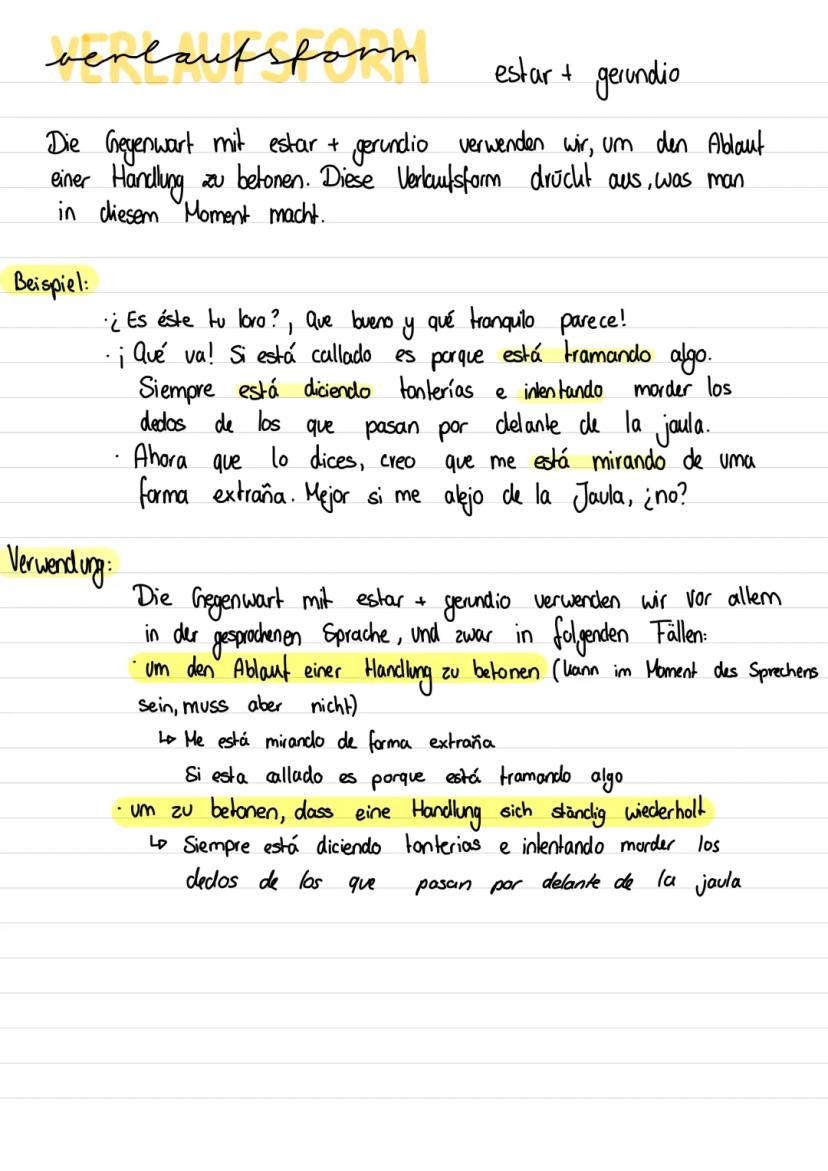 VERLAUFSFORM
verlaufsform
estar + gerundio
Die Gegenwart mit estar + gerundio verwenden wir, um den Ablauf
einer Handlung zu betonen. Diese Verlaufsform drückt aus, was man
in diesem Moment macht.
Beispiel:
· ¿Es éste tu loro?, Que bueno y qué tranquilo parece!
· ¡Qué va! Si está callado es porque está tramando algo.
Siempre está diciendo tonterías e intentando morder los
dedos de los que pasan por delante de la jaula.
· Ahora que lo dices, creo que me está mirando de uma
forma extraña. Mejor si me alejo de la Jaula, ¿no?
Verwendung:
Die Gegenwart mit estar + gerundio verwenden wir vor allem
in der gesprochenen Sprache, und zwar in folgenden Fällen:
· um den Ablauf einer Handlung zu betonen (kann im Moment des Sprechens
sein, muss aber nicht)
↳ Me está mirando de forma extraña
Si esta callado es porque está tramando algo
· um zu betonen, dass eine Handlung sich ständig wiederholt
↳ Siempre está diciendo tonterias e intentando morder los
dedos de los que pasan por delante de la jaula